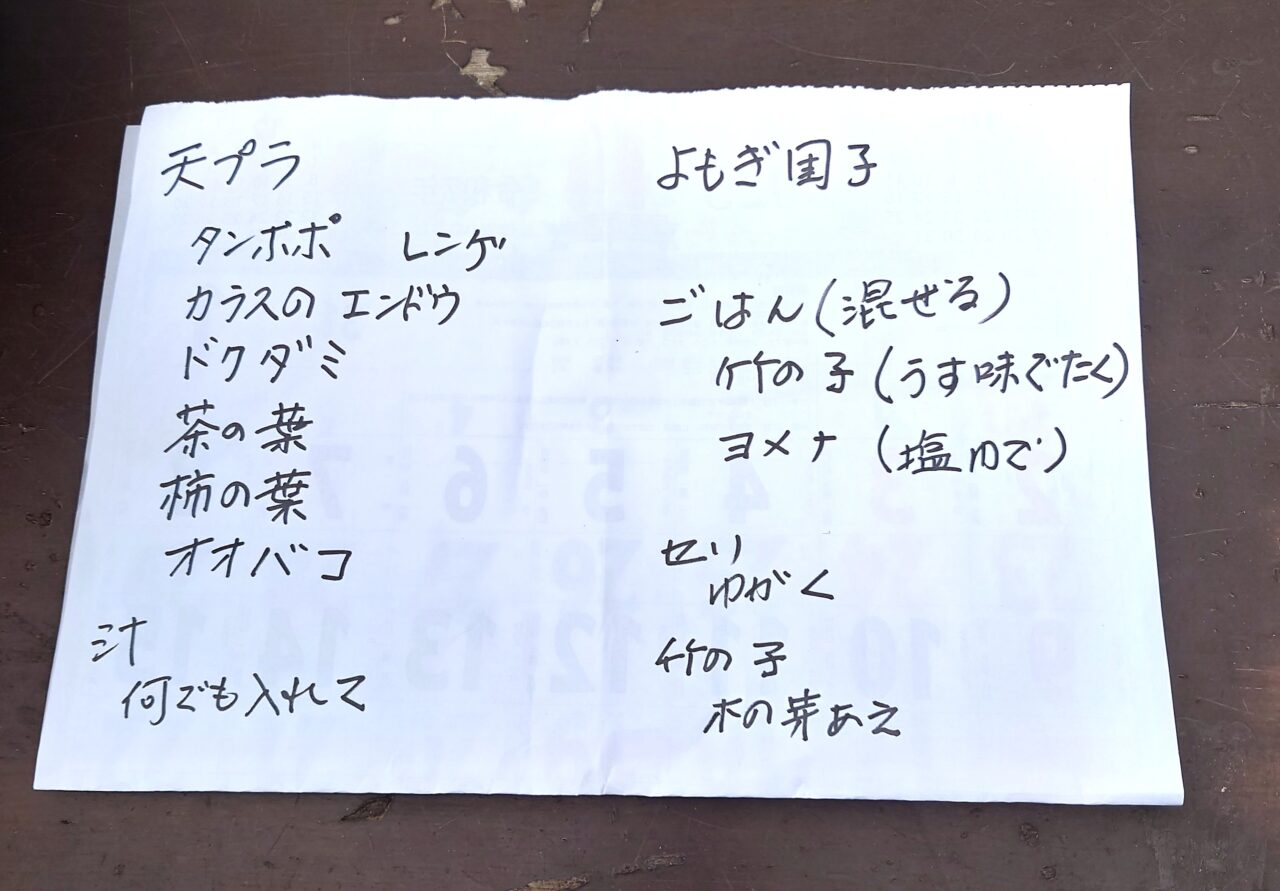 天プラ
タンポポ レンゲ
カラスのエンドウ
ドクダミ
茶の葉
柿の葉
オオバコ
汁
何でも入れて
よもぎ団子
ごはん(混ぜる)
竹の子(うす味でたく)
ヨメナ(塩ゆで)
セリ
ゆがく
竹の子
木の芽あえ
2 3 4 5 6 7
9 10 11 12 13 14 15